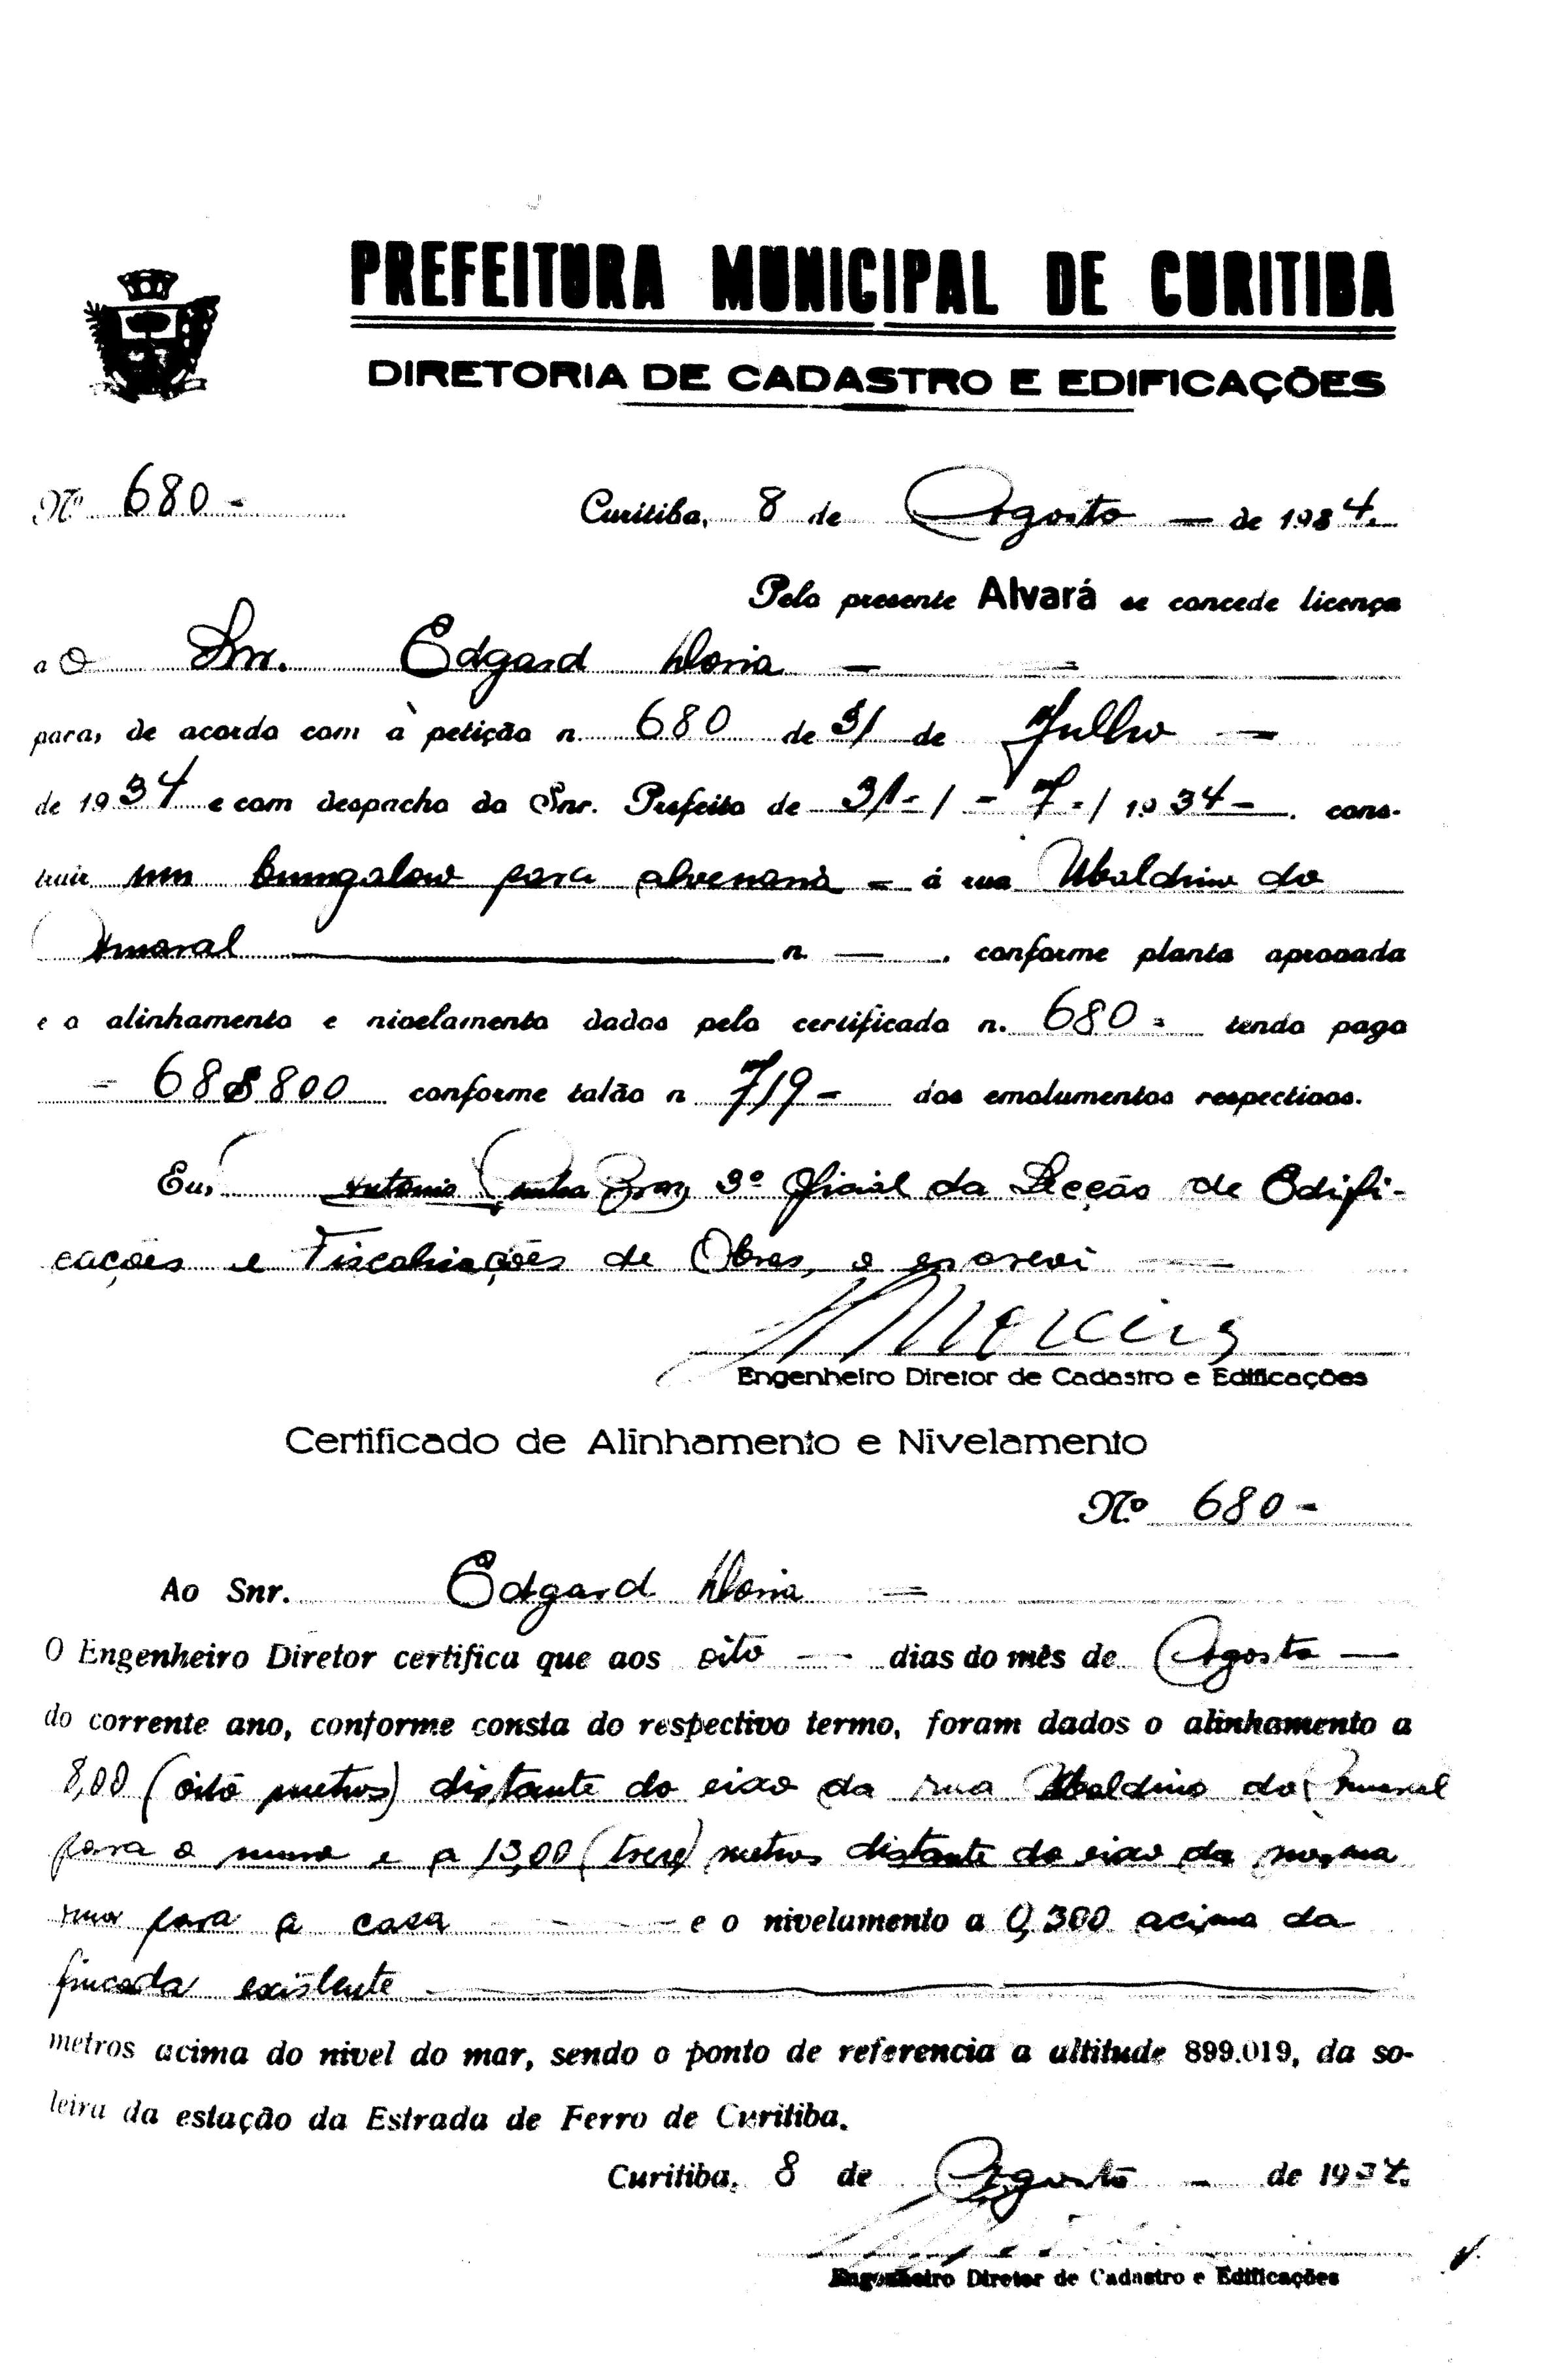 PREFEITURA MUNICIPAL DE CURITIBA
DIRETORIA DE CADASTRO E EDIFICAÇÕES
Nº 680 - Curitiba, 8 de Agosto — de 1934.
Pelo presente Alvará se concede licença
a O Snr. Edgard Doria —
para, de acordo com a petição n. 680 de 31 de Julho —
de 1934 e com despacho do Snr. Prefeito de 31 - / - 7 - / 1934 - . cons-
truir um bungalow para alvenaria - á rua Ubaldino do
Amaral n. — . conforme planta aprovada
e o alinhamento e nivelamento dados pelo certificado n. 680 - tendo pago
- 68$800 conforme talão n 719 - dos emolumentos respectivos.
Eu, Antonio 3º Oficial da Secção de Edifi-
cações e Fiscalizações de Obras, o escrevi —
Moreira
Engenheiro Diretor de Cadastro e Edificações
Certificado de Alinhamento e Nivelamento
N.º 680 -
Ao Snr. Edgard Doria —
O Engenheiro Diretor certifica que aos oito — dias do mês de Agosto —
do corrente ano, conforme consta do respectivo termo, foram dados o alinhamento a
8,00 (oito metros) distante do eixo da rua Ubaldino do Amaral
para o muro e a 13,00 (treze) metros distante do eixo da mesma
rua para a casa — e o nivelamento a 0,300 acima da
fincada existente
metros acima do nivel do mar, sendo o ponto de referencia a altitude 899.019, da so-
leira da estação da Estrada de Ferro de Curitiba.
Curitiba, 8 de Agosto - de 1934.
Engenheiro Diretor de Cadastro e Edificações